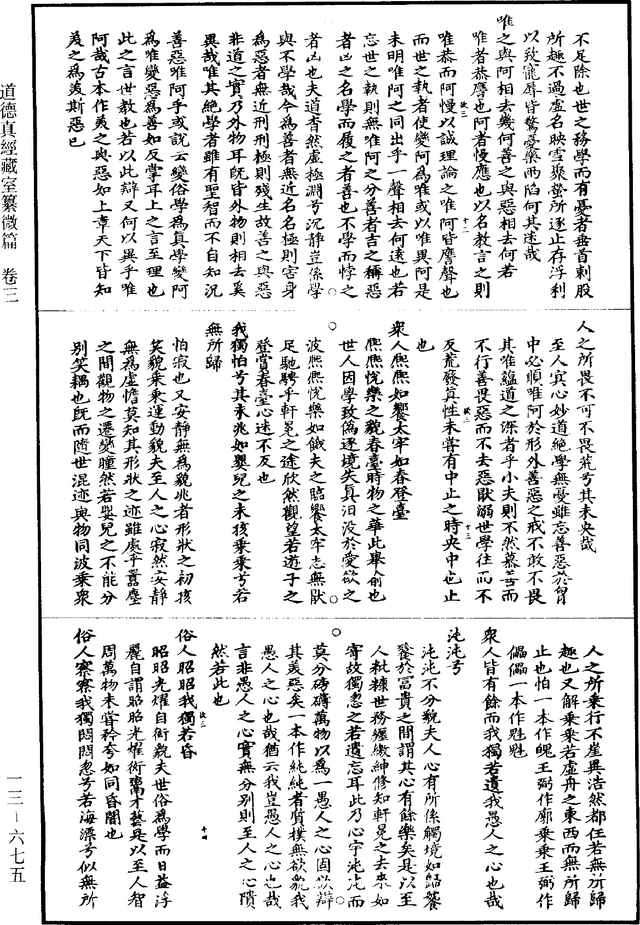 道德真經藏室纂微篇　卷三
一三—六七五
不足除也世之務學而有憂者垂首刺股
所趣不過虛名映雪聚螢所逐止存浮利
以致寵辱皆驚憂藥兩陷何其迷哉
唯之與阿相去幾何善之與惡相去何若
唯者恭膺也阿者慢應也以名教言之則
欲三　十二
唯恭而阿慢以誠理論之唯阿皆膺聲也
而世之執者使變阿為唯或以唯異阿是
未明唯阿之同出乎一聲相去何遠也若
忘世之執則無唯阿之分善者吉之稱惡
者凶之名學而履之者善也不學而悖之
者凶也夫道杳然虛極淵兮沉靜豈係學
與不學哉今為善者無近名名極則害身
為惡者無近刑刑極則殘生故善之與惡
非道之實乃外物耳既皆外物則相去奚
異哉唯其絕學者雖有聖智而不自知況
善惡唯阿乎或說云變俗學為真學變阿
為唯變惡為善如反掌耳上之言至理也
此之言世教也若以此辯又何以異乎唯
阿哉古本作美之與惡如上章天下皆知
美之為美斯惡也
人之所畏不可不畏荒兮其未央哉
至人冥心妙道絕學無憂雖忘善惡於胷
中必順唯阿於形外善惡之戒不敢不畏
其唯蘊道之深者乎小夫則不然慕善而
欲三　十三
不行善畏惡而不去惡猒溺世學往而不
反荒廢真性未甞有中止之時央中也止
也
衆人熙熙如饗太牢如春登臺
熙熙恱樂之貌春臺時物之華此舉喻也
世人因學致偽逐境失真汩沒於愛欲之
波熙熙恱樂如餓夫之臨饗太牢志無猒
足馳騁乎軒冕之途欣然觀望若遊子之
登賞春臺心迷不反也
我獨怕兮其未兆如嬰兒之未孩乘乘兮若
無所歸
怕寂也又安靜無為貌兆者形狀之初孩
笑貌乘乘運動貌夫至人之心寂然安靜
無為虛憺莫知其形狀之迹雖處乎囂塵
之間觀物之遷變瞳然若嬰兒之不能分
別笑耦也旣而隨世混迹與物同波乘衆
人之所乘行不崖異浩然都任若無所歸
趣也又解乘乘若虛舟之東西而無所歸
止也怕一本作魄王弼作廓乘乘王弼作
儡儡一本作魁魁
衆人皆有餘而我獨若遺我愚人之心也哉
沌沌兮
沌沌不分貌夫人心有所係觸境如飴饕
餮於富貴之間謂其心有餘樂矣是以至
人粃糠世務纏繳紳修知軒冕之去來如
寄故獨忽之若遺忘耳此乃心宇沌沌而
莫分磅礴萬物以為一愚人之心固欲辯
其美惡矣一本作純純者質樸無欲貌我
愚人之心也哉猶云我豈愚人之心也哉
言非愚人之心實無分別則至人之心隤
然若此也
俗人昭昭我獨若昏
欲三　十四
昭昭光耀自衒貌夫世俗為學而日益浮
麗自謂昭昭光耀衒鬻才藝是以至人智
周萬物未甞矜夸如同昏闇也
俗人察察我獨悶悶忽兮若海漂兮似無所